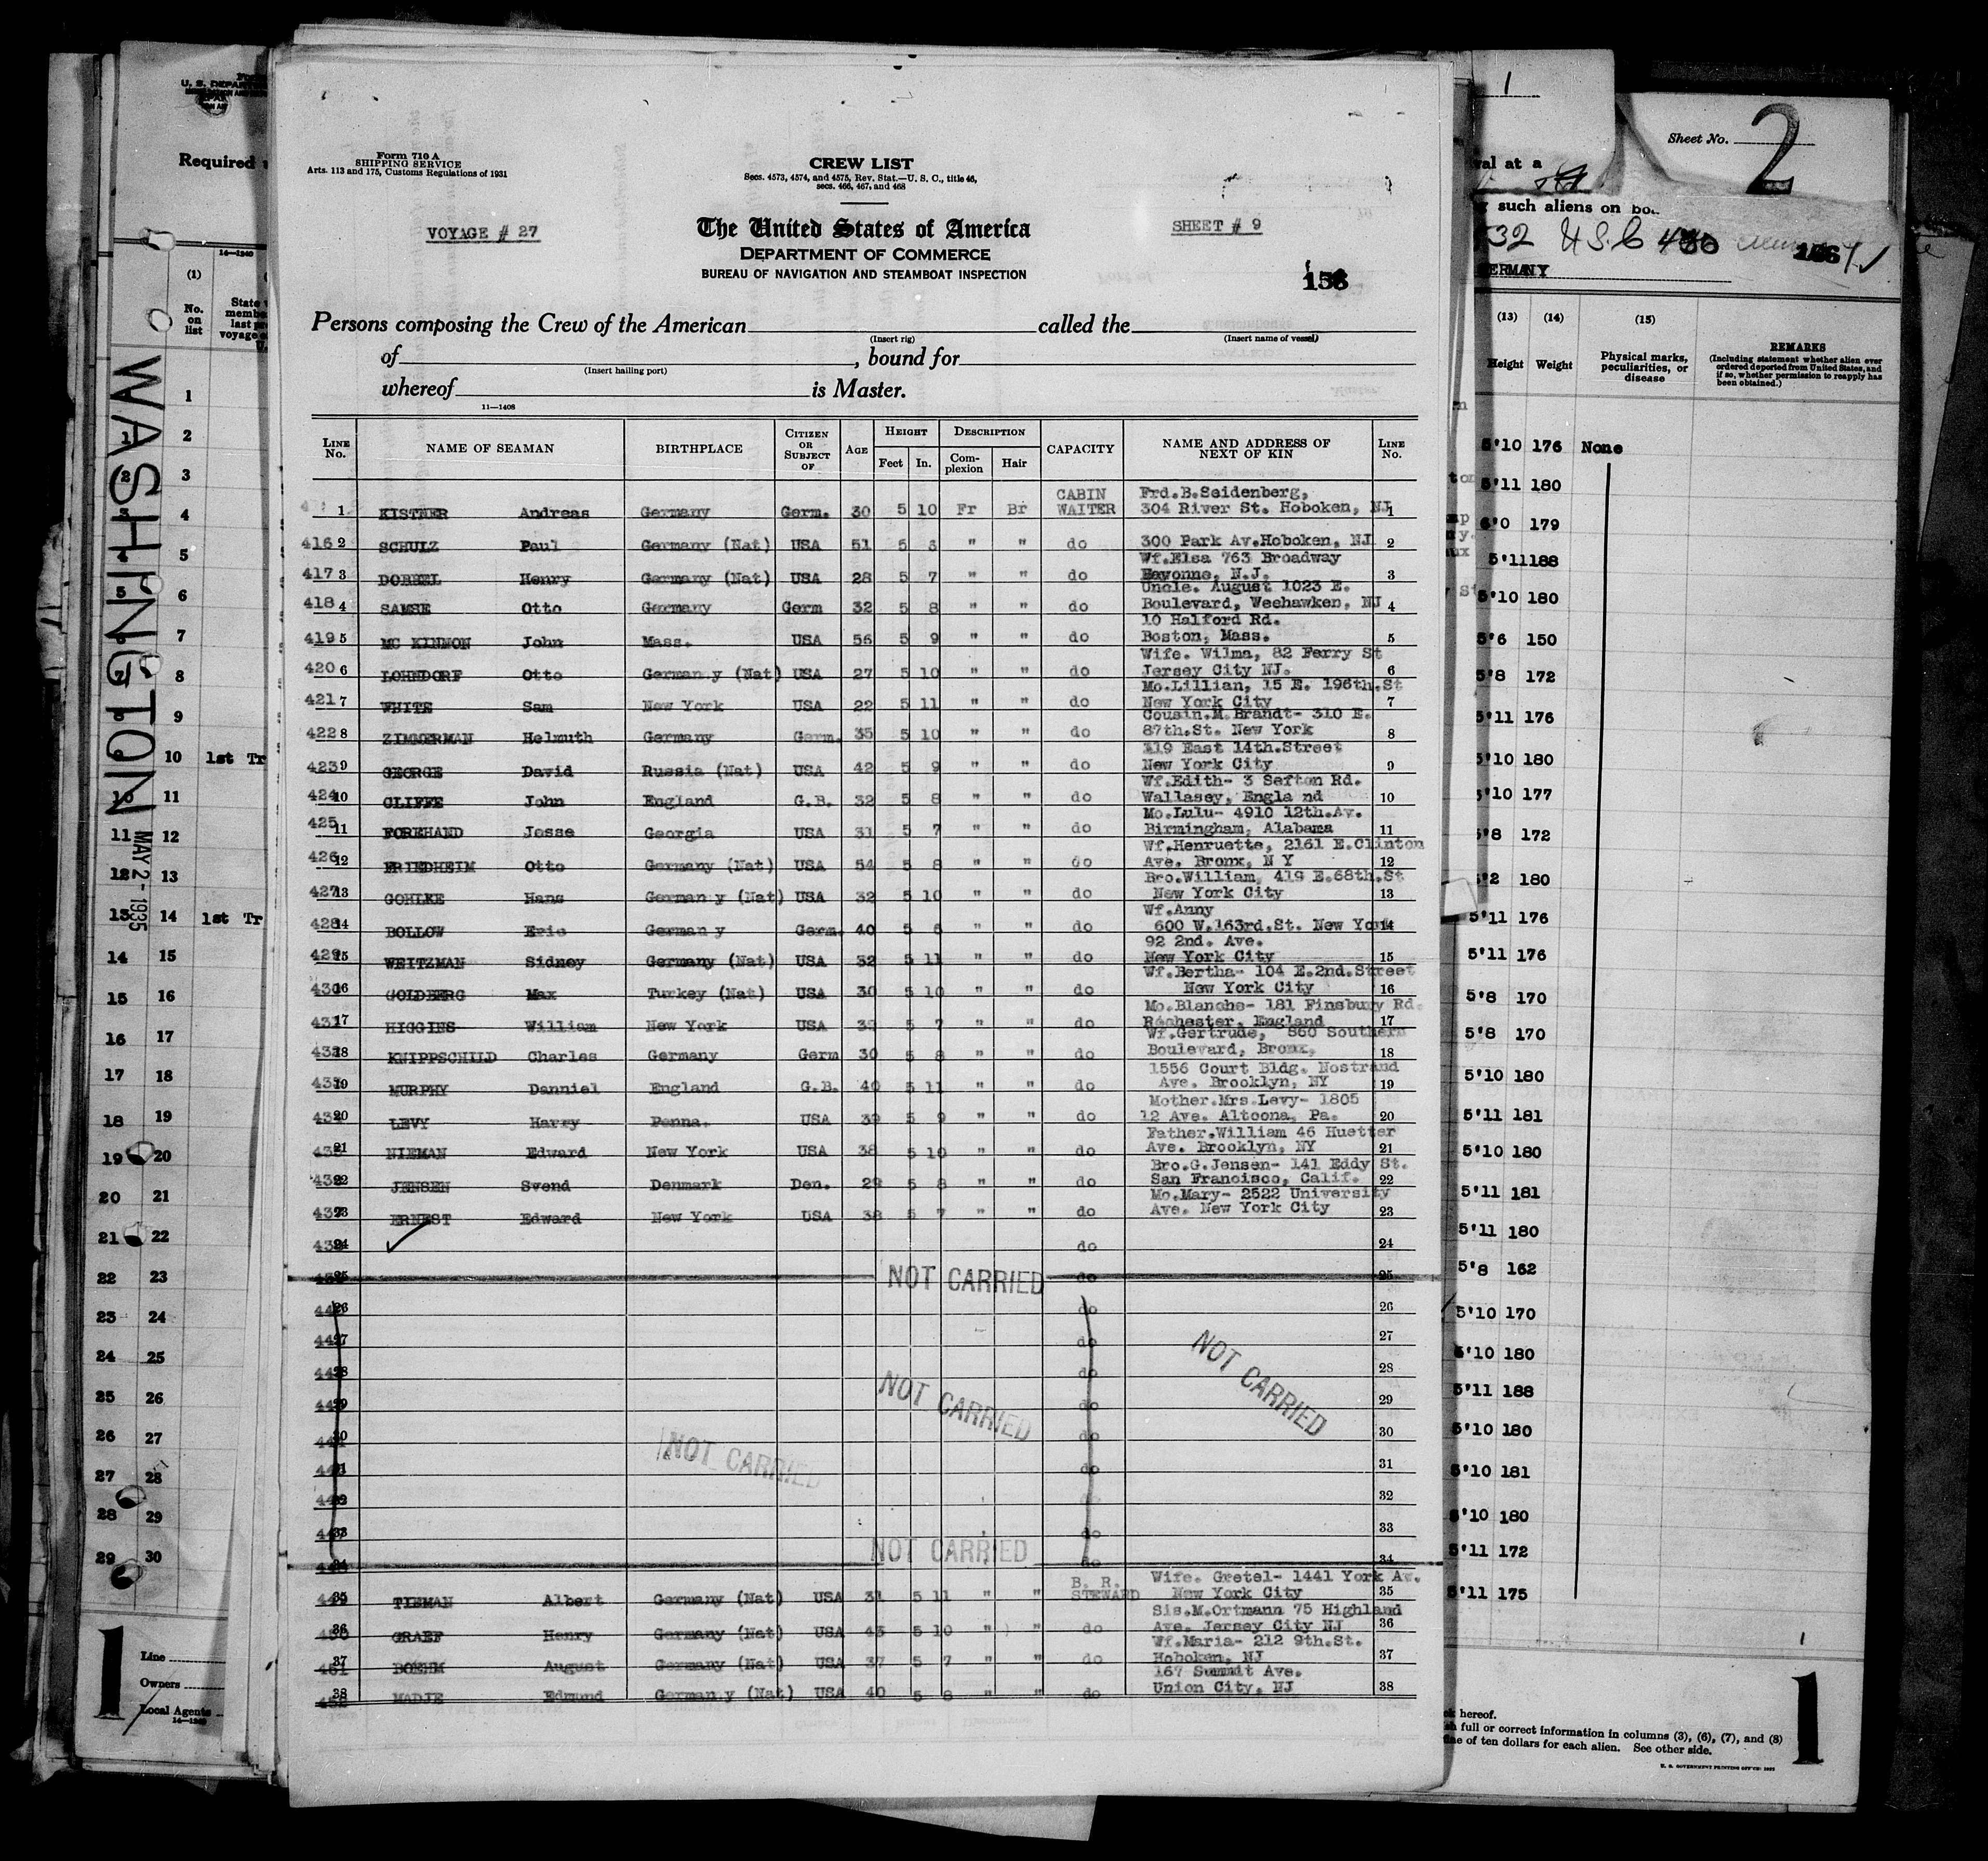 Form 710 A
SHIPPING SERVICE
Arts. 113 and 175, Customs Regulations of 1931
CREW LIST
Secs. 4573, 4574, and 4575, Rev. Stat.—U. S. C., title 46,
secs. 466, 467, and 468
VOYAGE # 27
The United States of America
SHEET # 9
DEPARTMENT OF COMMERCE
BUREAU OF NAVIGATION AND STEAMBOAT INSPECTION
Persons composing the Crew of the American called the
(Insert rig) (Insert name of vessel)
of , bound for
(Insert hailing port)
whereof is Master.
11—1408
LINE No. NAME OF SEAMAN BIRTHPLACE CITIZEN OR SUBJECT OF AGE HEIGHT Feet In. DESCRIPTION Complexion Hair CAPACITY NAME AND ADDRESS OF NEXT OF KIN LINE No.
1 KISTNER Andreas Germany Germ. 30 5 10 Fr Br CABIN WAITER Frd.B.Seidenberg, 304 River St. Hoboken, NJ 1
416 2 SCHULZ Paul Germany (Nat) USA 51 5 " " do 300 Park Av.Hoboken, NJ 2
417 3 Henry Germany (Nat) USA 28 5 7 " " do Wf.Elsa 763 Broadway Bayonne, N.J. 3
418 4 SAMSE Otto Germany Germ 32 5 8 " " do Uncle. August 1023 E. Boulevard, Weehawken, NJ 4
419 5 MC KINNON John Mass. USA 56 5 9 " " do 10 Halford Rd. Boston, Mass. 5
420 6 LOHNDORF Otto German.y (Nat) USA 27 5 10 " " do Wife. Wilma, 82 Ferry St Jersey City NJ. 6
421 7 WHITE Sam New York USA 22 5 11 " " do Mo.Lillian, 15 E. 196th.St New York City 7
422 8 ZIMMERMAN Helmuth Germany Germ. 35 5 10 " " do Cousin.M.Brandt- 310 E. 87th.St. New York 8
423 9 GEORGE David Russia (Nat) USA 42 5 9 " " do 119 East 14th.Street New York City 9
424 10 CLIFFE John England G.B. 32 5 8 " " do Wf.Edith- 3 Sefton Rd. Wallasey, Engla nd 10
425 11 FOREHAND Jesse Georgia USA 31 5 7 " " do Mo.Lulu- 4910 12th.Av. Birmingham, Alabama 11
426 12 FRIEDHEIM Otto Germany (Nat) USA 54 5 8 " " do Wf.Henruette, 2161 E.Clinton Ave. Bronx, N Y 12
427 13 GOHLKE Hans German y (Nat) USA 32 5 10 " " do Bro.William, 419 E.68th.St New York City 13
428 14 BOLLOW Eric German y Germ. 40 5 8 " " do Wf.Anny 600 W.163rd.St. New York 14
429 15 WEITZMAN Sidney Germany (Nat) USA 32 5 11 " " do 92 2nd. Ave. New York City 15
430 16 GOLDBERG Max Turkey (Nat) USA 30 5 10 " " do Wf.Bertha- 104 E.2nd.Street New York City 16
431 17 HIGGINS William New York USA 39 5 7 " " do Mo.Blanche- 181 Finsbury Rd. Rochester, England 17
432 18 KNIPPSCHILD Charles Germany Germ 30 5 8 " " do Wf.Gertrude, 860 Southern Boulevard, Bronx, 18
433 19 MURPHY Danniel England G.B. 40 5 11 " " do 1556 Court Bldg. Nostrand Ave. Brooklyn, NY 19
434 20 LEVY Harry Penna. USA 39 5 9 " " do Mother.Mrs.Levy- 1805 12 Ave. Altoona, Pa. 20
435 21 NIEMAN Edward New York USA 38 5 10 " " do Father.William 46 Huetter Ave. Brooklyn, NY 21
436 22 JENSEN Svend Denmark Den. 29 5 8 " " do Bro.G.Jensen- 141 Eddy St. San Francisco, Calif. 22
437 23 ERNEST Edward New York USA 38 5 7 " " do Mo.Mary- 2522 University Ave. New York City 23
438 24 do 24
25 NOT CARRIED do 25
26 do 26
27 do 27
28 do 28
29 do 29
30 do 30
31 do 31
32 32
33 do 33
34 do 34
NOT CARRIED
NOT CARRIED
NOT CARRIED
NOT CARRIED
35 TIEMAN Albert Germany (Nat) USA 31 5 11 " " B. R. STEWARD Wife. Gretel- 1441 York Av. New York City 35
450 36 GRAEF Henry Germany (Nat) USA 43 5 10 " " do Sis.M.Ortmann 75 Highland Ave. Jersey City NJ 36
451 37 BOEHM August Germany (Nat) USA 37 5 7 " " do Wf.Maria- 212 9th.St. Hoboken, NJ 37
452 38 MADJE Edmund German y (Nat) USA 40 5 8 " " do 167 Summit Ave. Union City, NJ 38
WASHINGTON
MAY 2 - 1935
Required
(1)
No. on list
1st Tr
1st Tr
1
Line
Owners
Local Agents
14—1240
Sheet No. 2
val at a
such aliens on
32 U.S.C
GERMANY
(13) (14) (15)
Height Weight Physical marks, peculiarities, or disease
REMARKS
(Including statement whether alien ever ordered deported from United States, and if so, whether permission to reapply has been obtained.)
5'10 176 None
5'11 180
6'0 179
5'11 188
5'10 180
5'6 150
5'8 172
5'11 176
5'10 180
5'10 177
5'8 172
5'2 180
5'11 176
5'11 176
5'8 170
5'8 170
5'10 180
5'11 181
5'10 180
5'11 181
5'11 180
5'8 162
5'10 170
5'10 180
5'11 188
5'10 180
5'10 181
5'10 180
5'11 172
5'11 175
hereof.
full or correct information in columns (3), (6), (7), and (8)
of ten dollars for each alien. See other side.
U. S. GOVERNMENT PRINTING OFFICE
1